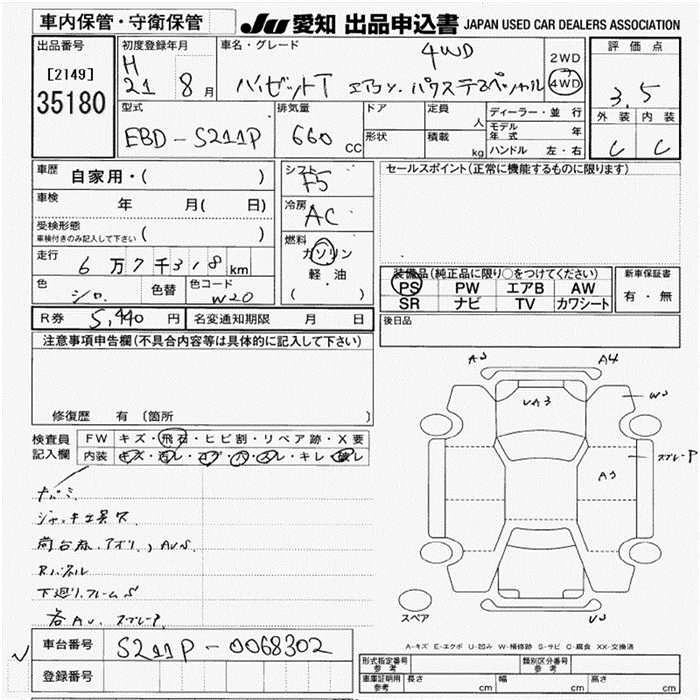 車内保管・守衛保管
JU 愛知 出品申込書 JAPAN USED CAR DEALERS ASSOCIATION
出品番号
[2149]
35180
初度登録年月
H
21 8 月
車名・グレード
4WD
ハイゼットT エアコン・パワステスペシャル
2WD
4WD
評価点
3.5
外装 内装
C C
型式
EBD-S211P
排気量
660 cc
ドア
形状
定員
人
積載
kg
ディーラー・並行
モデル年式 年
ハンドル 左・右
車歴 自家用・( )
車検 年 月( 日)
受検形態
車検付きのみ記入して下さい ( )
走行
6万7千318km
色
シロ
色替
色コード
W20
シフト
F5
冷房
AC
燃料
ガソリン
軽油
( )
セールスポイント(正常に機能するものに限ります)
装備品(純正品に限り○をつけてください)
PS PW エアB AW
SR ナビ TV カワシート
新車保証書
有・無
R券 5,440 円 名変通知期限 月 日
後日品
注意事項申告欄(不具合内容等は具体的に記入して下さい)
修復歴 有 〔箇所 〕
検査員
記入欄
FW キズ・飛石・ヒビ割・リペア跡・X要
内装 キズ・汚レ・コゲ・穴・スレ・キレ・破レ
ジャッキ工具欠
荷台 アオリ、AUS
Rパネル
下廻リ、フレームS
各AU スプレーP
A3 A4
UA3
W3
スプレーP
A3
U3
スペア
A-キズ E-エクボ U-凹み W-補修跡 S-サビ C-腐食 XX-交換済
車台番号 S211P-0068302
登録番号
形式指定番号
参考
類別区分番号
参考
車庫証明用
参考
長さ cm 幅 cm 高さ cm